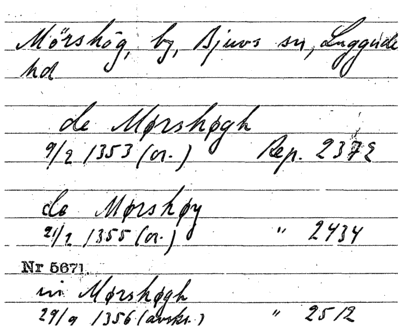 Mörshög, by, Bjuvs sn, Luggude
hd
de Mørshøgh
9/2 1353 (or.) Rep. 2372
de Mørshøy
21/2 1355 (or.) " 2434
Nr 5671.
in Mørshøgh
29/9 1356 (avskr.) " 2512